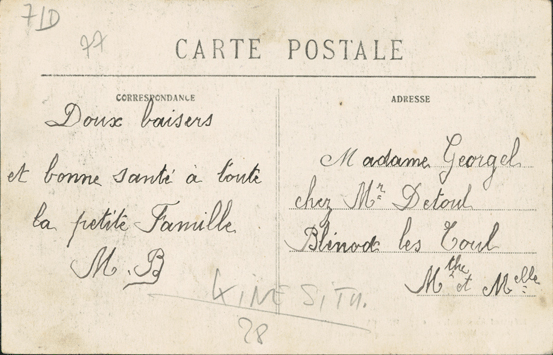 71D
77
CARTE POSTALE
CORRESPONDANCE
Doux baisers
et bonne santé à toute
la petite Famille
M. B
ADRESSE
Madame Georgel
chez Mr Detoul
Blénod les Toul
Mthe et Melle
28